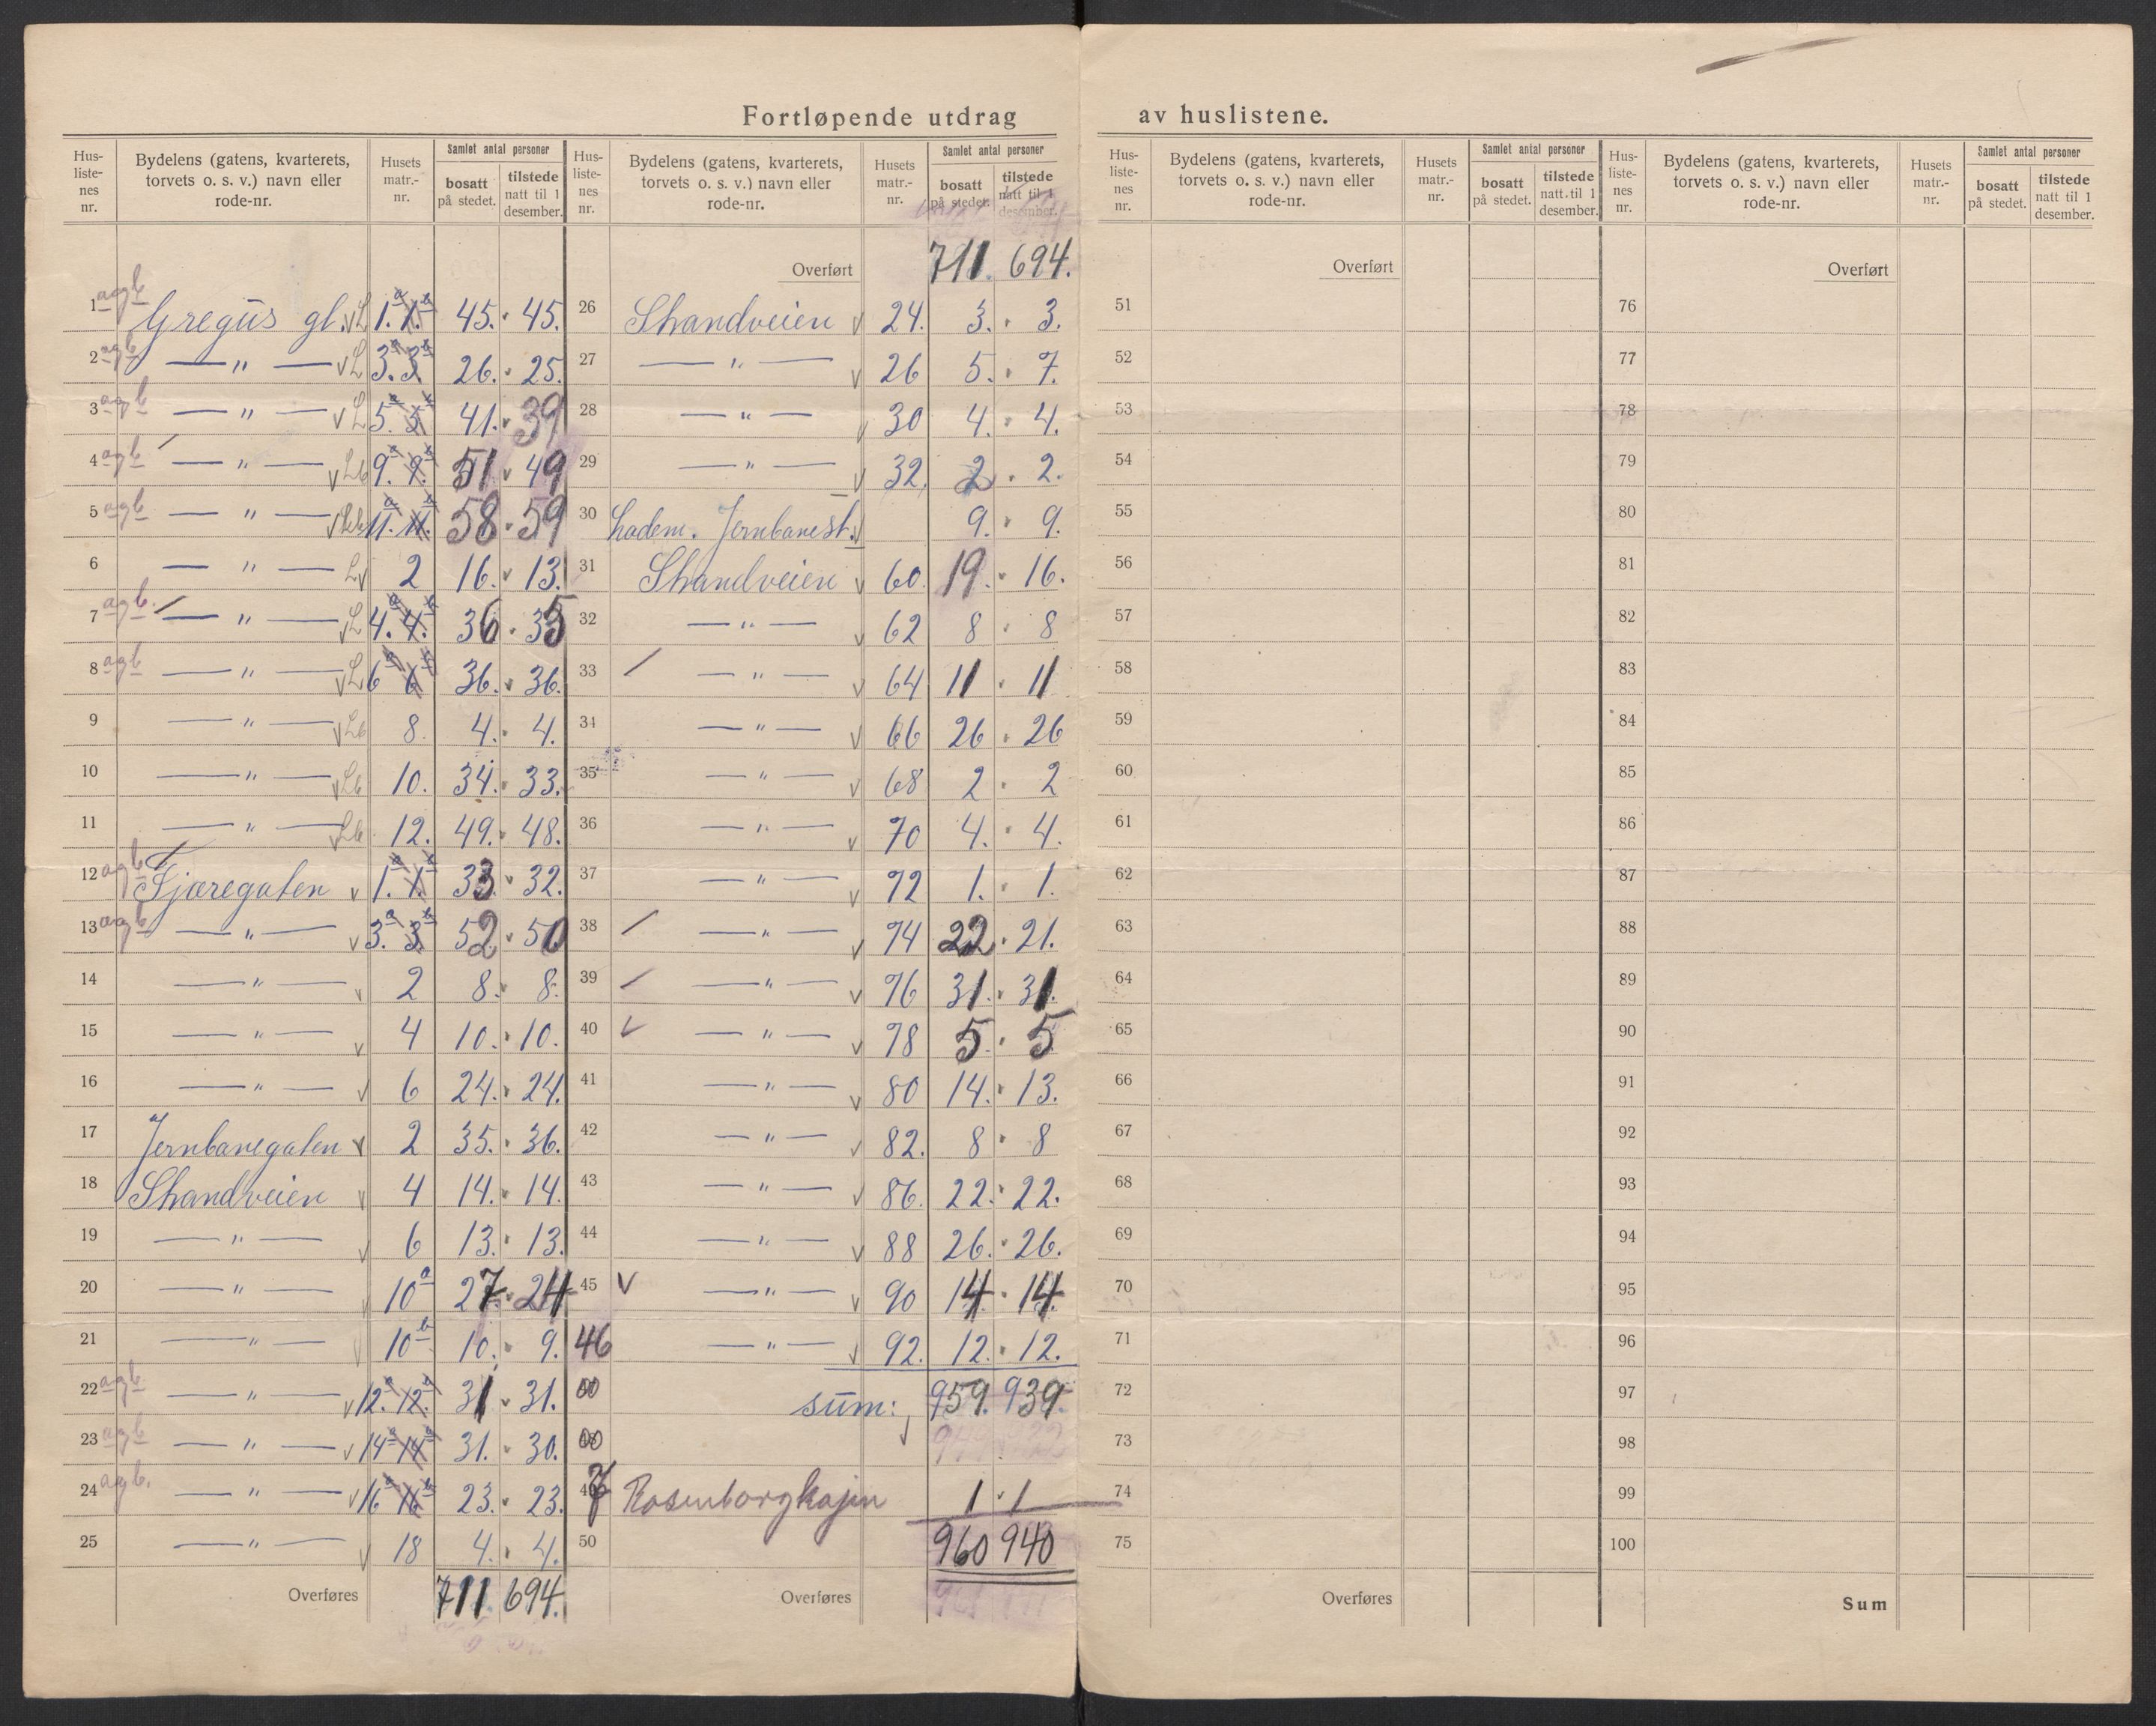 Fortløpende utdrag av huslistene.
Hus-listenes nr. | Bydelens (gatens, kvarterets, torvets o. s. v.) navn eller rode-nr. | Husets matr.-nr. | Samlet antal personer | bosatt på stedet. | tilstede natt til 1 desember.
1 agb Gregus gt. v L 1.a 1.b 45. 45.
2 agb — " — v L 3.a 3.b 26. 25.
3 agb — " — v L 5.a 5.b 41. 39
4 agb — " — v Lb 9.a 9.b 51 49
5 agb — " — v Lb 11.a 11.b 58 59
6 — " — L v 2 16. 13.
7 agb. — " — v L 4.a 4.b 36 35
8 agb — " — v L 6a 6b 36. 36.
9 — " — v Lb 8. 4. 4.
10 — " — v Lb 10. 34. 33.
11 — " — v Lb 12. 49. 48.
12 agb Fjæregaten v 1.a 1.b 33. 32.
13 agb — " — v 3.a 3.b 52 50
14 — " — v 2 8. 8.
15 — " — v 4 10. 10.
16 — " — v 6 24. 24.
17 Jernbanegaten v 2 35. 36.
18 Strandveien v 4 14. 14.
19 — " — v 6 13. 13.
20 — " — v 10a 27. 24
21 — " — v 10b 10. 9.
22 agb — " — v 12.a 12.b 31 31.
23 agb — " — v 14a 14b 31. 30.
24 agb. — " — v 16a 16b 23. 23.
25 — " — v 18 4. 4.
Overføres 711. 694.
Hus-listenes nr. | Bydelens (gatens, kvarterets, torvets o. s. v.) navn eller rode-nr. | Husets matr.-nr. | Samlet antal personer | bosatt på stedet. | tilstede natt til 1 desember.
Overført 711. 694.
26 Strandveien v 24. 3. 3.
27 — " — v 26 5. 7.
28 — " — v 30 4. 4.
29 — " — v 32. 2 2.
30 Ladem. Jernbanest. v 9. 9.
31 Strandveien v 60. 19. 16.
32 — " — v 62 8 8
33 — " — v 64 11 11
34 — " — v 66 26 26
35 — " — v 68 2 2
36 — " — v 70 4. 4.
37 — " — v 72 1. 1.
38 — " — v 74 22 21.
39 — " — v 76 31. 31.
40 v — " — v 78 5. 5
41 — " — v 80 14. 13.
42 — " — v 82. 8 8
43 — " — v 86. 22. 22.
44 — " — v 88 26. 26.
45 v — " — v 90 14 14.
46 — " — v 92. 12. 12.
00 sum: 959. 939.
00
47 Rosenborgkajen 1 1
50 960 940
Overføres
Hus-listenes nr. | Bydelens (gatens, kvarterets, torvets o. s. v.) navn eller rode-nr. | Husets matr.-nr. | Samlet antal personer | bosatt på stedet. | tilstede natt til 1 desember.
Overført
51
52
53
54
55
56
57
58
59
60
61
62
63
64
65
66
67
68
69
70
71
72
73
74
75
Overføres
Hus-listenes nr. | Bydelens (gatens, kvarterets, torvets o. s. v.) navn eller rode-nr. | Husets matr.-nr. | Samlet antal personer | bosatt på stedet. | tilstede natt til 1 desember.
Overført
76
77
78
79
80
81
82
83
84
85
86
87
88
89
90
91
92
93
94
95
96
97
98
99
100
Sum